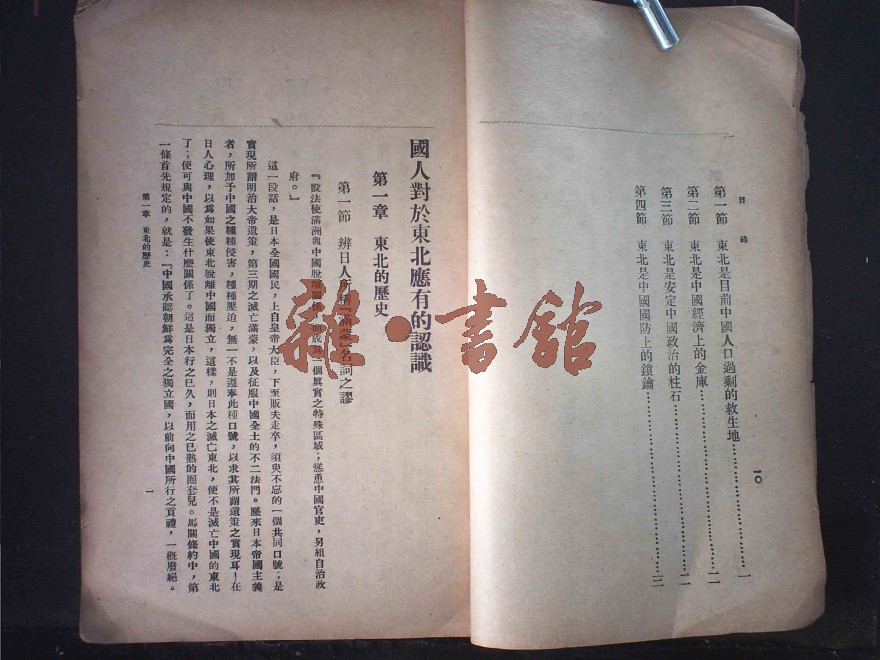 目錄
第一節 東北是目前中國人口過剩的救生地……………………一
第二節 東北是中國經濟上的金庫……………………一一
第三節 東北是安定中國政治的柱石……………………二
第四節 東北是中國國防上的鎖鑰……………………三
一〇
國人對於東北應有的認識
第一章 東北的歷史
第一節 辨日人所稱『滿蒙』名詞之謬
『設法使滿洲與中國脫離關係，而成為一個眞實之特殊區域；慫恿中國官吏，另組自治政
府。』
這一段話，是日本全國國民，上自皇帝大臣，下至販夫走卒，須臾不忘的一個共同口號；是
實現所謂明治大帝遺策，第三期之滅亡滿蒙，以及征服中國全土的不二法門。歷來日本帝國主義
者，所加予中國之種種侵害，種種壓迫，無一不是遵奉此種口號，以求其所謂遺策之實現耳！在
日人心理，以爲如果使東北脫離中國而獨立，這樣，則日本之滅亡東北，便不是滅亡中國的東北
了；便可與中國不發生什麼關係了。這是日本行之已久，而用之已熟的圈套兒。馬關條約中，第
一條首先規定的，就是：『中國承認朝鮮爲完全之獨立國，以前向中國所行之貢禮，一概廢絕。
第一章 東北的歷史
一
雜·書館